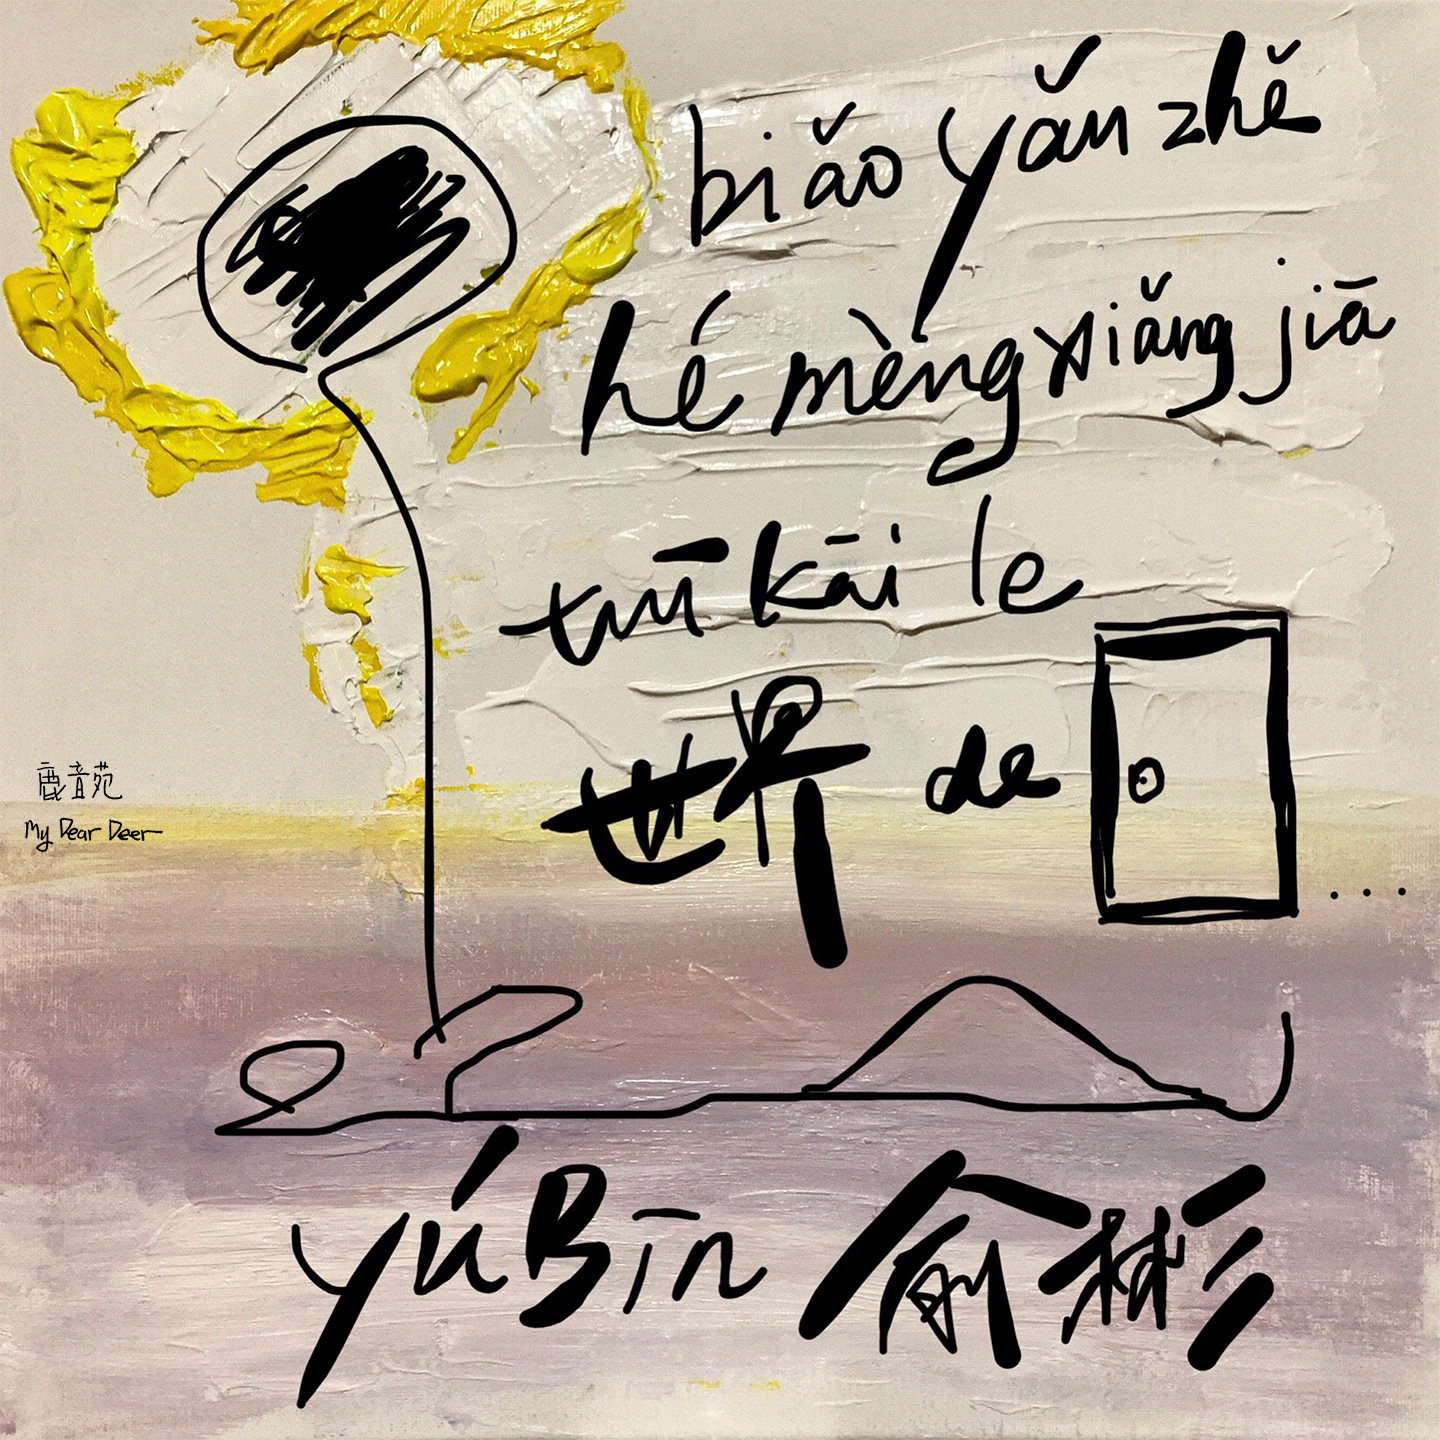 biǎo yǎn zhě
hé mèng xiǎng jiā
tuī kāi le
世界 de
...
鹿音苑
My Dear Deer
yú Bīn 俞彬